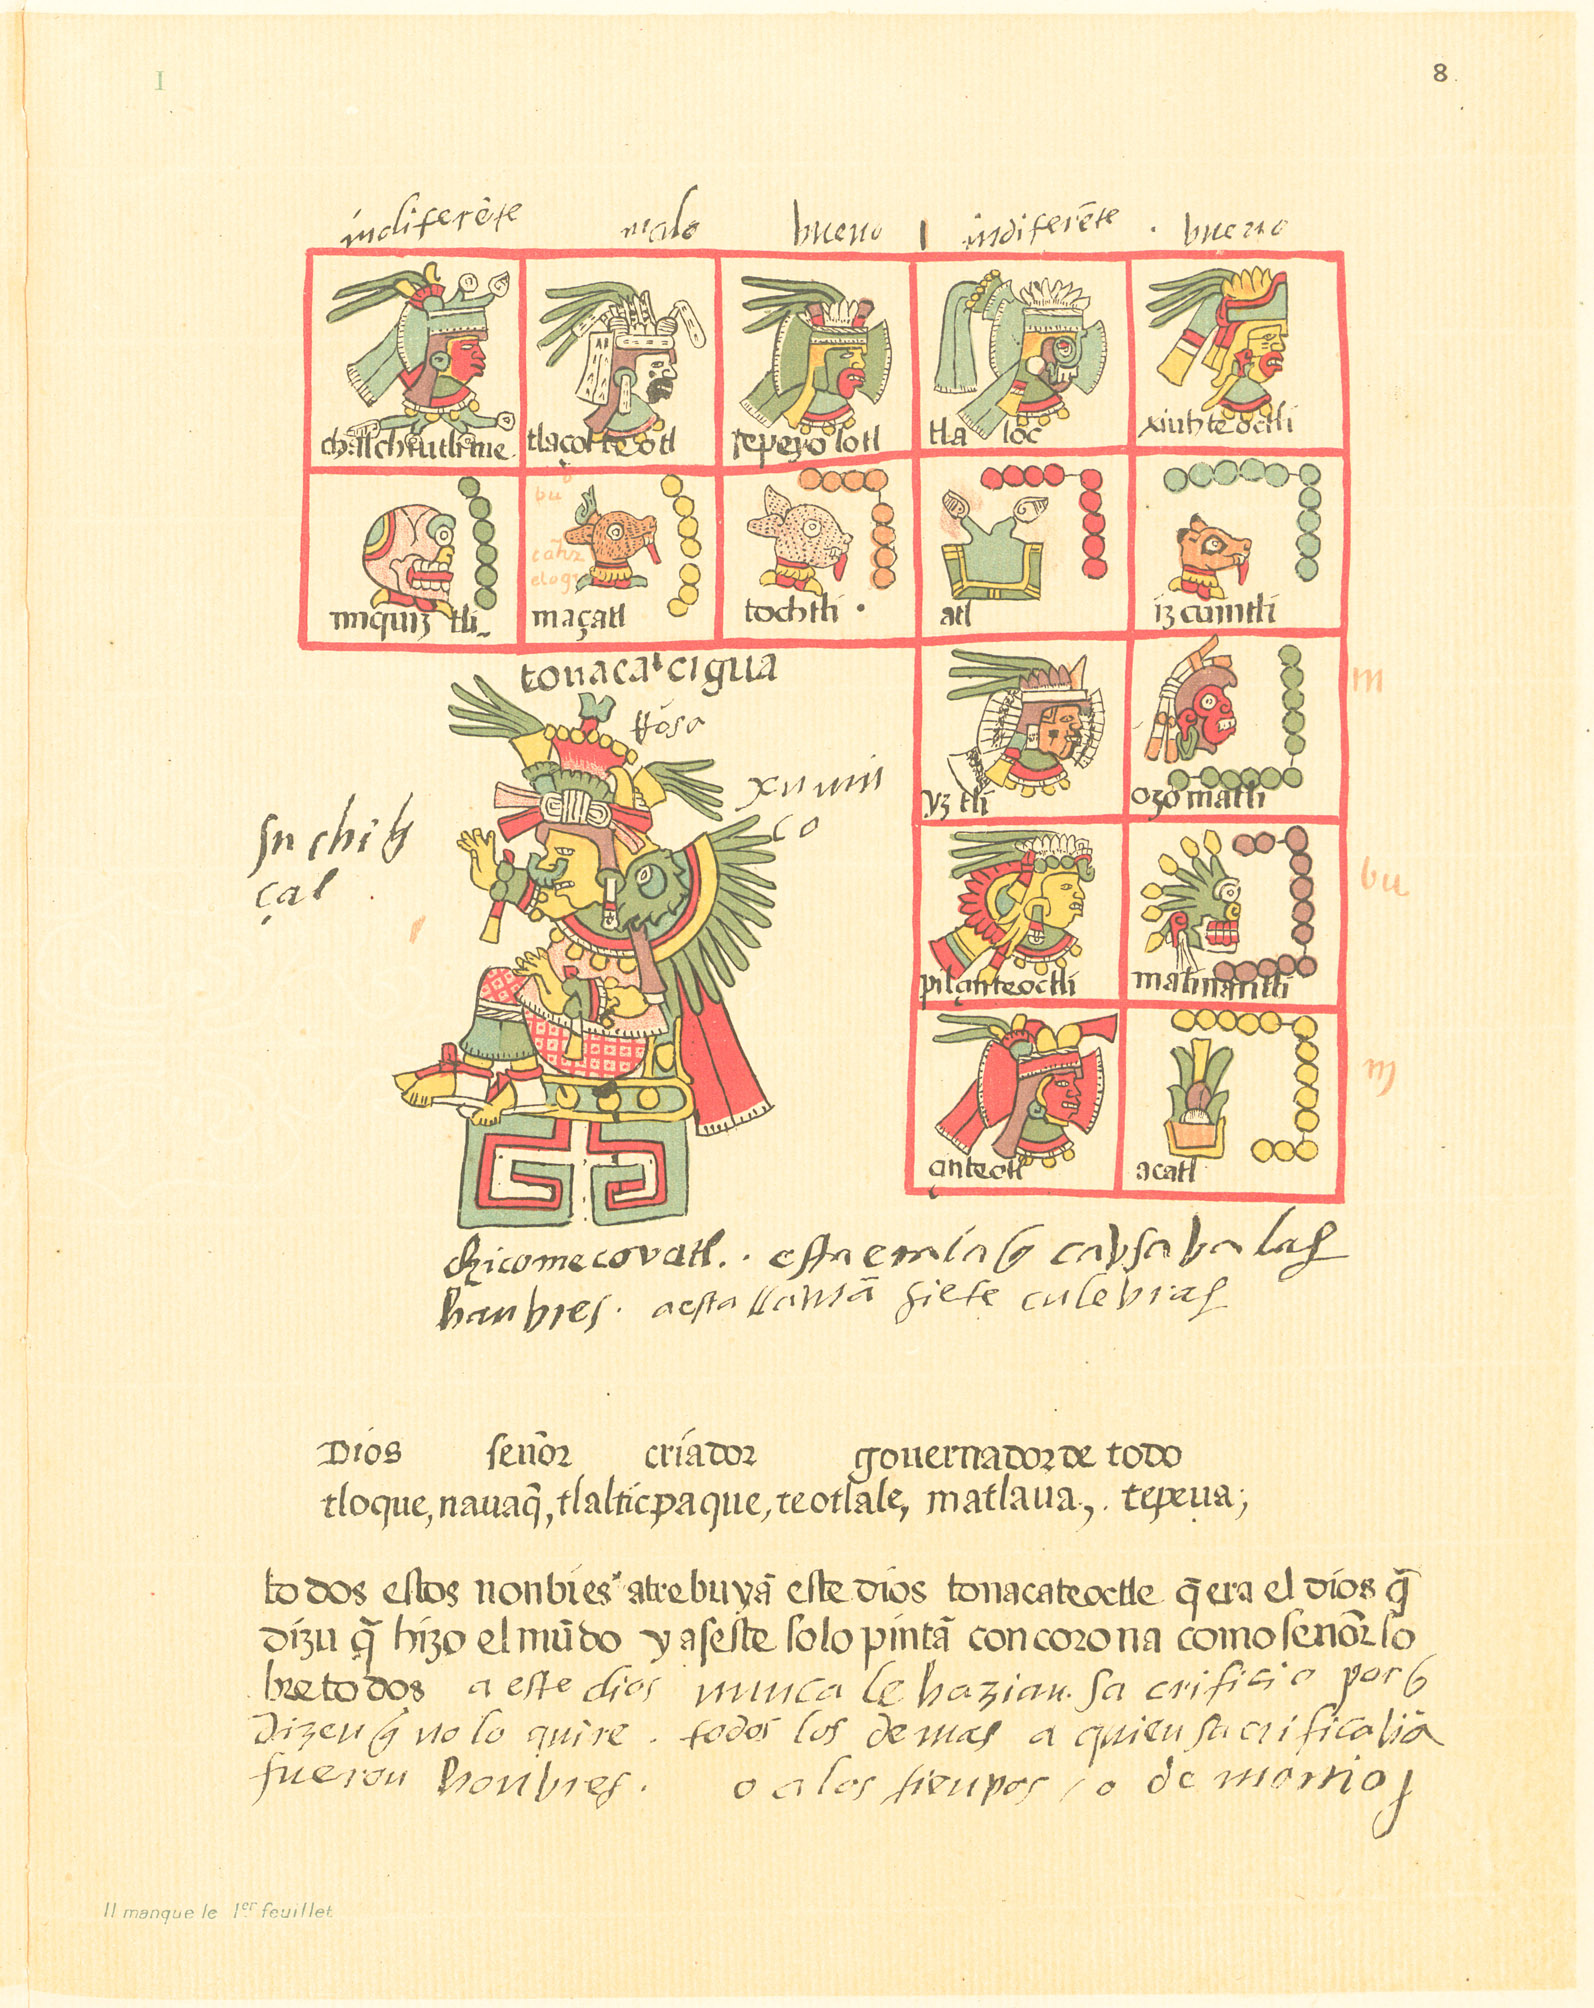 I
8
indiferēte malo bueno indiferēte . bueno
chalchiutli me.
tlaçolteotl
tepeyolotl
tlaloc
xiuhteoctli
bu
miquiztli
maçatl
tochtli .
atl
izcuintli
tonacacigua
m
suchiq̄
çal
yztli
ozomatli
bu
pilçinteoctli
malinanlli
m
çinteotl
acatl
chicomecovatl . . esta era la q̄ cabsaba las
hanbres . a esta llamā siete culebras
Dios señor criador governador de todo
tloque, nauaq̄, tlalticpaque, teotlale, matlaua,. tepeua;
todos estos nonbres atrebuyā este dios tonacateoctle q̄ era el dios q̄
dizē q̄ hizo el mūdo y aseste solo pintā con corona como señor so
bre todos a este dios nunca le hazian sacrificio por q̄
dizen q̄ no lo quire . todos los demas a quien sacrificabā
fueron honbres . o a los tienpos / o demonios
Il manque le 1er feuillet